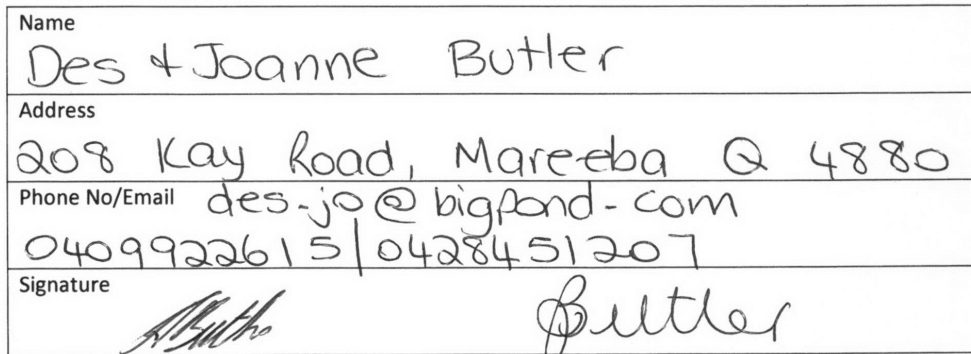 Name
Des + Joanne Butler
Address
208 Kay Road, Mareeba Q 4880
Phone No/Email des-jo@bigpond-com
0409922615/0428451207
Signature
Butler